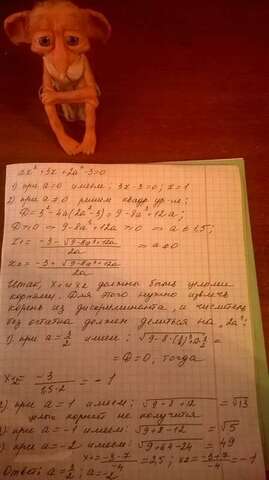 ax² + 3x + 2a² - 3 = 0
1) при a = 0 имеем: 3x - 3 = 0; x = 1
2) при a ≠ 0 решим квадр. ур-е:
D = 3² - 4a(2a² - 3) = 9 - 8a³ + 12a;
D ≥ 0 ⇒ 9 - 8a³ + 12a ≥ 0 ⇒ a ≤ 1,5;
x₁ = (-3 - √(9 - 8a³ + 12a)) / 2a
⇒ a ≠ 0
x₂ = (-3 + √(9 - 8a³ + 12a)) / 2a
Итак, x₁ и x₂ должно быть целыми
корнями. Для этого нужно извлечь
корень из дискриминанта, и числитель
без остатка должен делиться на „2a"
1) при a = 3/2 имеем:
= D = 0, тогда
= -3 / 1,5·2 = -1
2) при a = 1 имеем: √(9 - 8 + 12) = √13
корней не получится
при a = -1 имеем: √(9 + 8 - 12) = √5
) при a = -2 имеем: √(9 + 64 - 24) = 49
x₁ = (-3 - 7) / -4 = 2,5; x₂ = (-3 + 7) / -4 = -1
Ответ: a = 3/2; a = -2